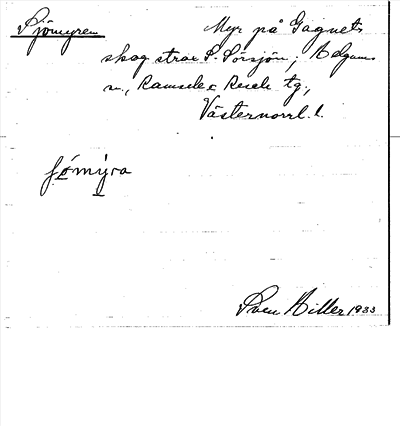 Sjömyren
Myr på Gagnets
skog strax S. Sörsjön; Helgums
sn, Ramsele o. Resele tg.,
Västernorrl. l.
jómýra
Sven Hiller 1933